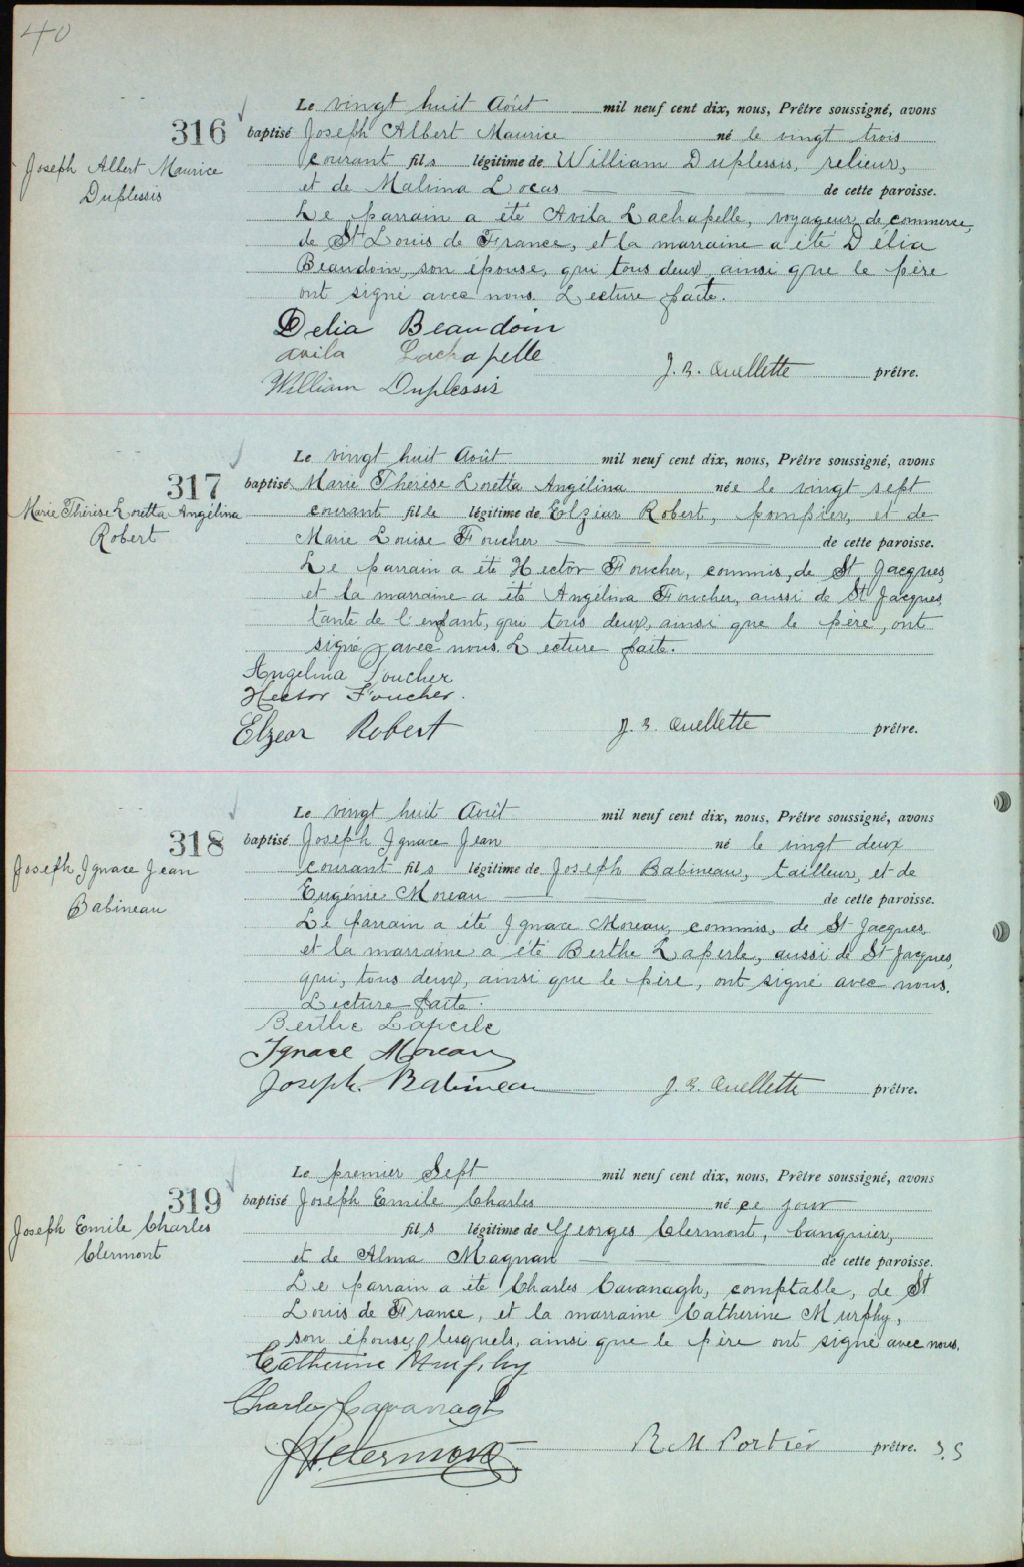 40
Le vingt huit Août mil neuf cent dix, nous, Prêtre soussigné, avons
316 baptisé Joseph Albert Maurice né le vingt trois
Joseph Albert Maurice
Duplessis
courant fils légitime de William Duplessis, relieur,
et de Malvina Locas de cette paroisse.
Le parrain a été Avila Lachapelle, voyageur de commerce,
de St Louis de France, et la marraine a été Délia
Beaudoin, son épouse, qui tous deux, ainsi que le père
ont signé avec nous. Lecture faite.
Delia Beaudoin
Avila Lachapelle
William Duplessis
J. B. Ouellette prêtre.
Le vingt huit Août mil neuf cent dix, nous, Prêtre soussigné, avons
317 baptisé Marie Thérèse Loretta Angélina née le vingt sept
Marie Thérèse Loretta Angélina
Robert
courant fille légitime de Elzéar Robert, pompier, et de
Marie Louise Foucher de cette paroisse.
Le parrain a été Hector Foucher, commis, de St Jacques,
et la marraine a été Angélina Foucher, aussi de St Jacques,
tante de l'enfant, qui tous deux, ainsi que le père, ont
signé avec nous. Lecture faite.
Angelina Foucher
Hector Foucher.
Elzear Robert
J. B. Ouellette prêtre.
Le vingt huit Août mil neuf cent dix, nous, Prêtre soussigné, avons
318 baptisé Joseph Ignace Jean né le vingt deux
Joseph Ignace Jean
Babineau
courant fils légitime de Joseph Babineau, tailleur, et de
Eugénie Moreau de cette paroisse.
Le parrain a été Ignace Moreau, commis, de St Jacques,
et la marraine a été Berthe Laperle, aussi de St Jacques,
qui, tous deux, ainsi que le père, ont signé avec nous.
Lecture faite.
Berthe Laperle
Ignace Moreau
Joseph Babineau
J. B. Ouellette prêtre.
Le premier Sept mil neuf cent dix, nous, Prêtre soussigné, avons
319 baptisé Joseph Emile Charles né ce jour
Joseph Emile Charles
Clermont
fils légitime de Georges Clermont, banquier,
et de Alma Magnan de cette paroisse.
Le parrain a été Charles Cavanagh, comptable, de St
Louis de France, et la marraine Catherine Murphy,
son épouse, lesquels, ainsi que le père ont signé avec nous.
Catherine Murphy
Charles Cavanagh
Clermont
R M Portier prêtre. S.S